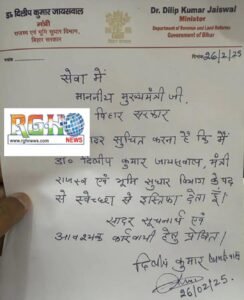 डा० दिलीप कुमार जायसवाल
मंत्री
राजस्व एवं भूमि सुधार विभाग,
बिहार सरकार
Dr. Dilip Kumar Jaiswal
Minister
Department of Revenue and Land Reforms
Government of Bihar
दिनांक 26/2/25
सेवा में
माननीय मुख्यमंत्री जी,
बिहार सरकार
RGH
NEWS
www.rghnews.com
सादर सूचित करना है कि मैं
डा० दिलीप कुमार जायसवाल, मंत्री
राजस्व एवं भूमि सुधार विभाग के पद
से स्वेच्छा से इस्तिफा देता हूँ।
सादर सूचनार्थ एवं
आवश्यक कार्यवाही हेतु प्रेषित।
दिलीप कुमार जायसवाल
26/02/25.